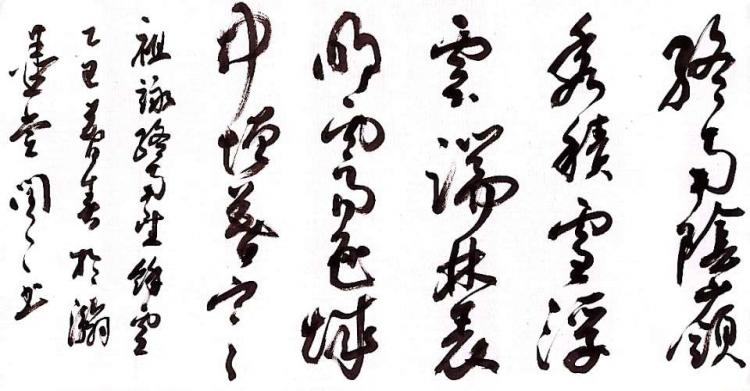 終南陰嶺
秀積雪浮
雲端林表
明霽色城
中增暮寒
祖詠終南望餘雪
乙暮春於瀚
墨堂书